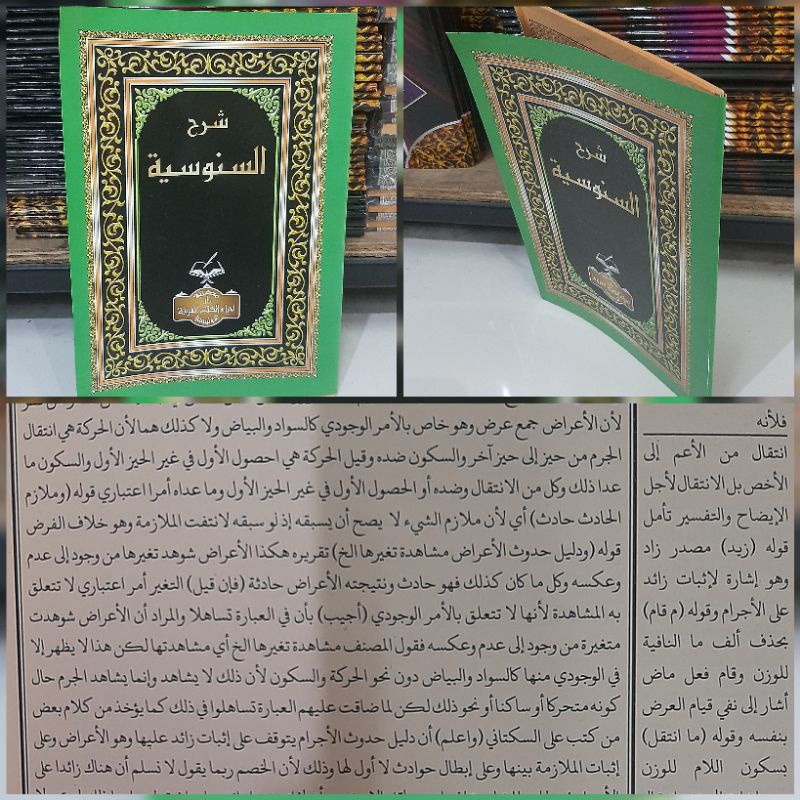 شرح
السنوسية
شرح
السنوسية
لأن الأعراض جمع عرض وهو خاص بالأمر الوجودي كالسواد والبياض ولا كذلك هما لأن الحركة هي انتقال
الجرم من حيز إلى حيز آخر والسكون ضده وقيل الحركة هي احصول الأول في غير الحيز الأول والسكون ما
عدا ذلك وكل من الانتقال وضده أو الحصول الأول في غير الحيز الأول وما عداه أمرا اعتباري قوله (وملازم
الحادث حادث) أي لأن ملازم الشيء لا يصح أن يسبقه إذ لو سبقه لانتفت الملازمة وهو خلاف الفرض
قوله (ودليل حدوث الأعراض مشاهدة تغيرها الخ) تقريره هكذا الأعراض شوهد تغيرها من وجود إلى عدم
وعكسه وكل ما كان كذلك فهو حادث ونتيجته الأعراض حادثة (فإن قيل) التغير أمر اعتباري لا تتعلق
به المشاهدة لأنها لا تتعلق بالأمر الوجودي (أجيب) بأن في العبارة تساهلا والمراد أن الأعراض شوهدت
متغيرة من وجود إلى عدم وعكسه فقول المصنف مشاهدة تغيرها الخ أي مشاهدتها لكن هذا لا يظهر إلا
في الوجودي منها كالسواد والبياض دون نحو الحركة والسكون لأن ذلك لا يشاهد وإنما يشاهد الجرم حال
كونه متحركا أو ساكنا أو نحو ذلك لكن لما ضاقت عليهم العبارة تساهلوا في ذلك كما يؤخذ من كلام بعض
من كتب على السكتاني (واعلم) أن دليل حدوث الأجرام يتوقف على إثبات زائد عليها وهو الأعراض وعلى
إثبات الملازمة بينها وعلى إبطال حوادث لا أول لها وذلك لأن الخصم ربما يقول لا نسلم أن هناك زائدا على
فلأنه
انتقال من الأعم إلى
الأخص بل الانتقال لأجل
الإيضاح والتفسير تأمل
قوله (زيد) مصدر زاد
وهو إشارة لإثبات زائد
على الأجرام وقوله (م قام)
بحذف ألف ما النافية
للوزن وقام فعل ماض
أشار إلى نفي قيام العرض
بنفسه وقوله (ما انتقل)
بسكون اللام للوزن